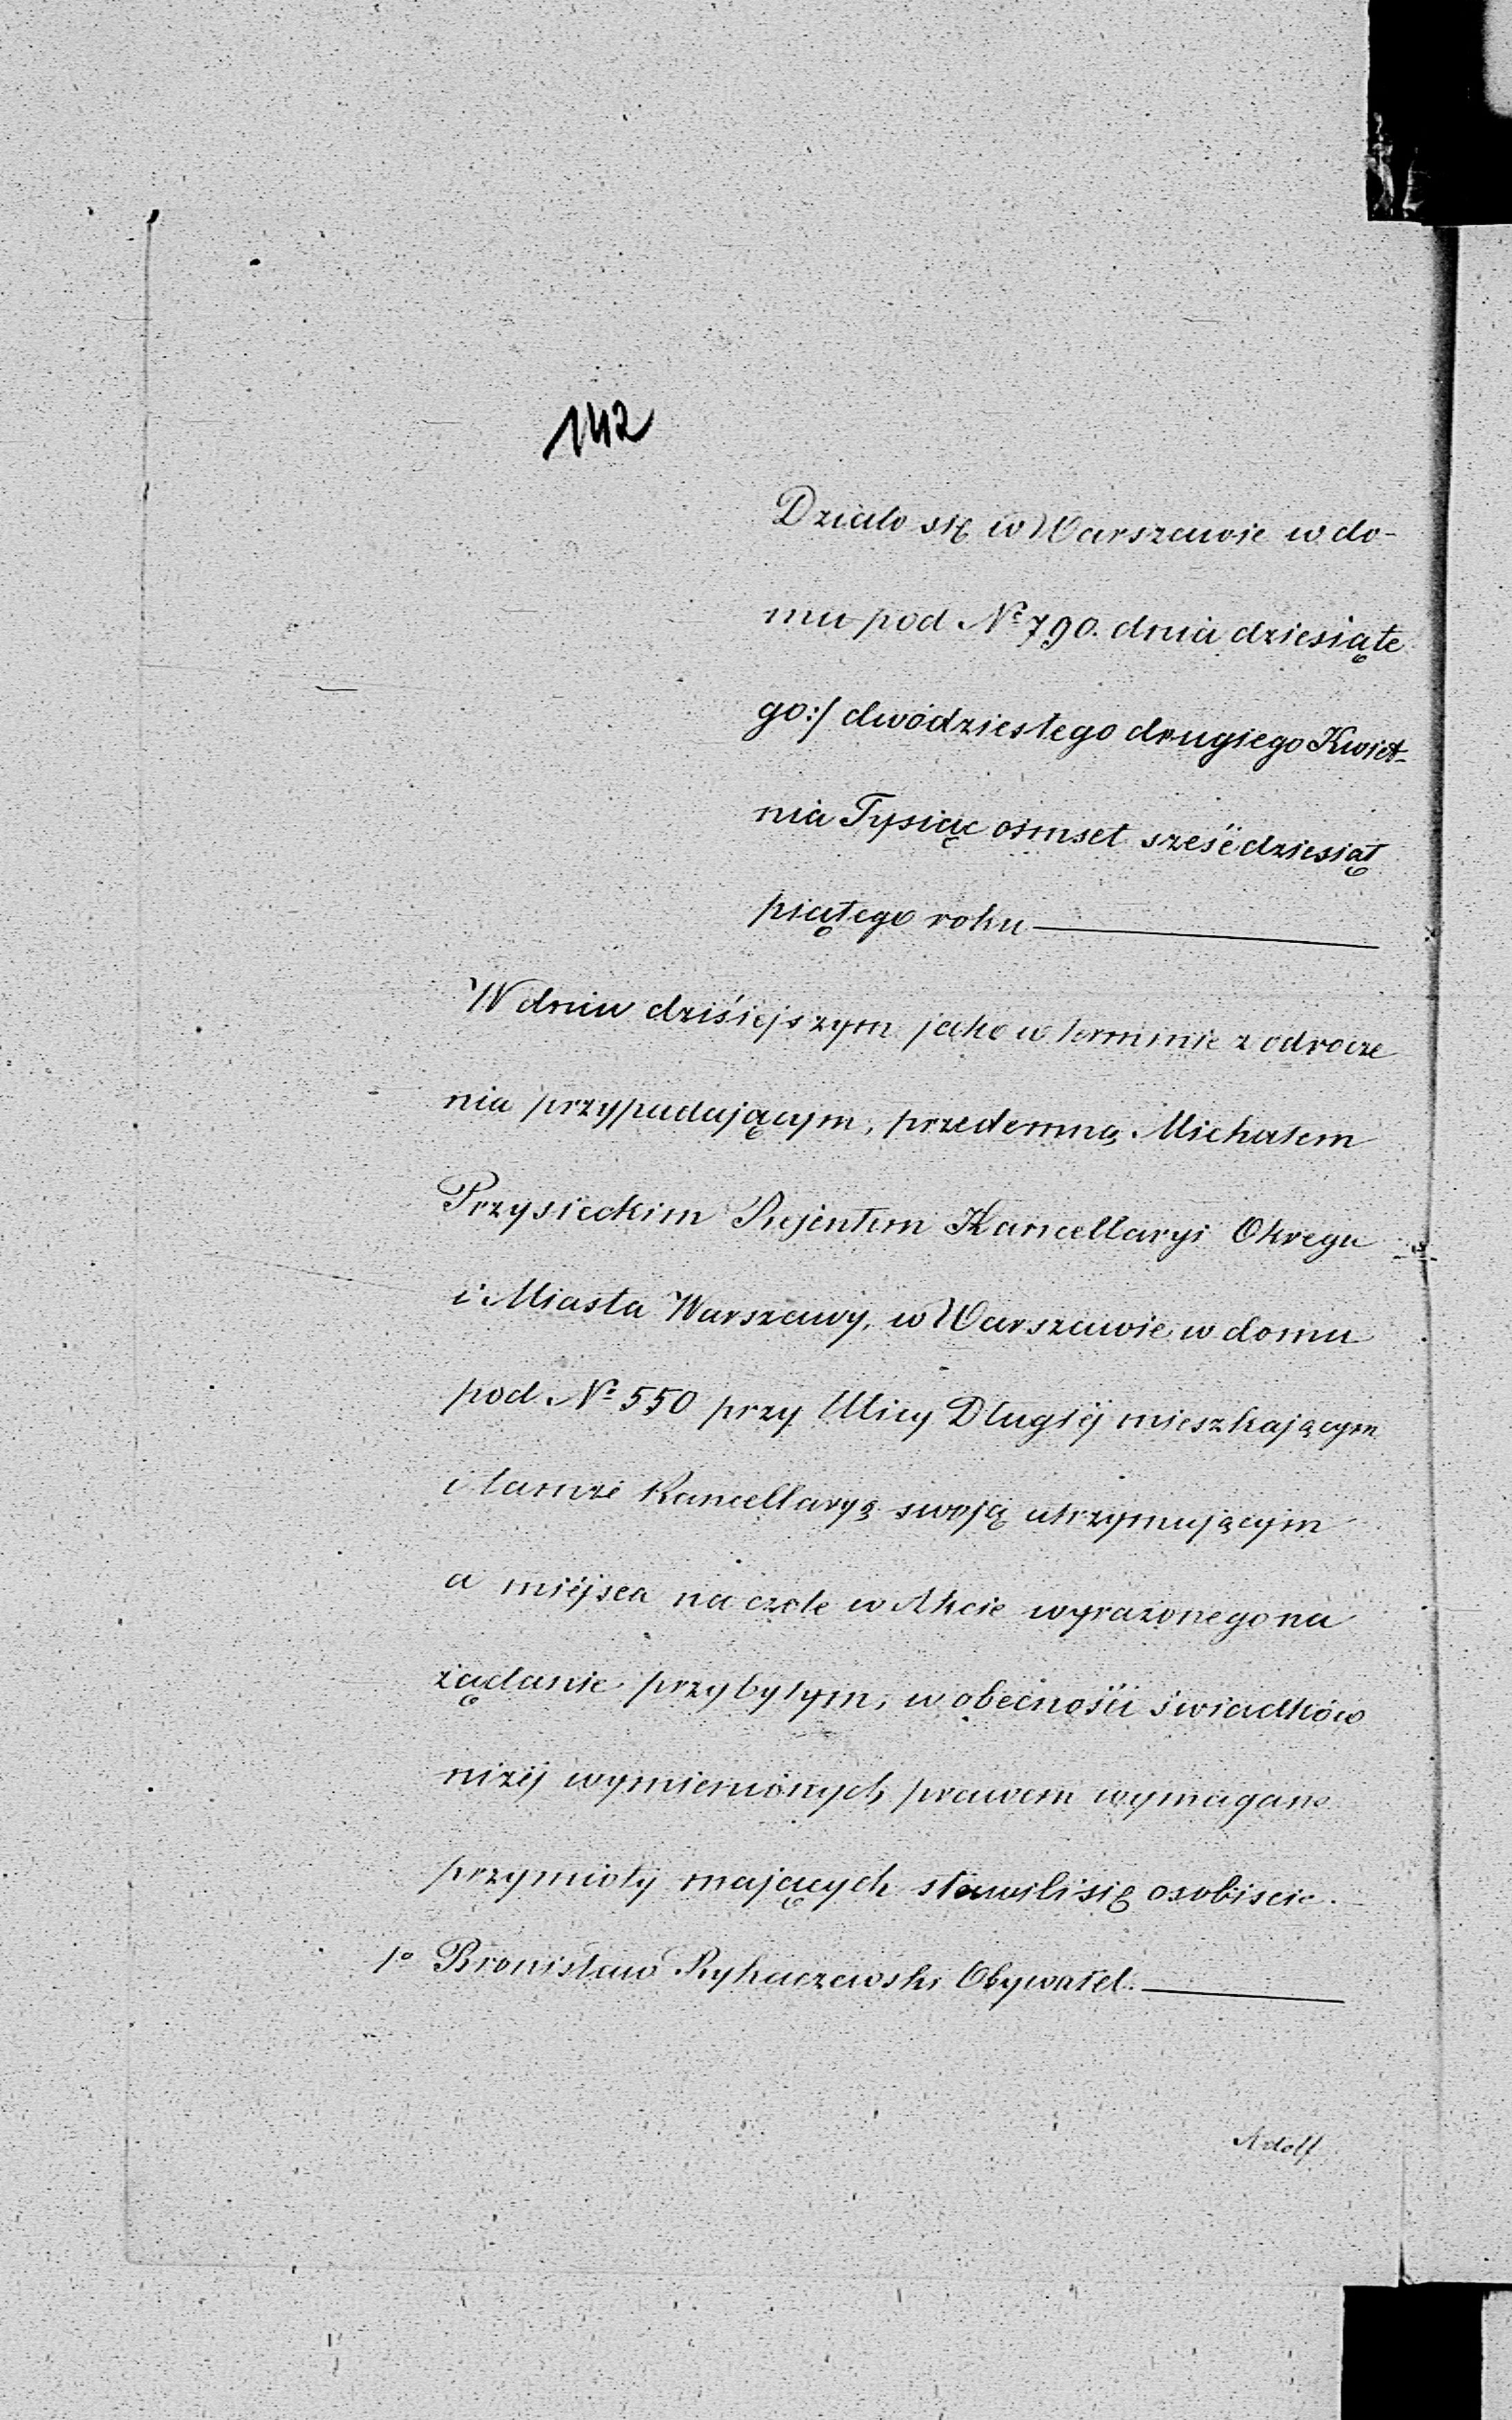 142
Działo się w Warszawie w do-
mu pod № 790. dnia dziesiąte
go:/ dwódziestego drugiego Kwiet-
nia Tysiąc ośmset sześćdziesiąt
piątego roku
W dniu dziśiejszym jako w terminie z odrocze
nia przypadającym, przedemną Michałem
Przysieckim Rejentem Kancellaryi Okręgu
i Miasta Warszawy, w Warszawie w domu
pod № 550 przy Ulicy Długiéj mieszkającym
i tamże Kancellaryą swoją utrzymującym
a miéjsca na czele w Akcie wyrażonego na
żądanie przybyłym, w obecności świadków
niżéj wymienionych prawem wymagane
przymioty mających stawili się osobiscie.
1º Bronisław Rykaczewski Obywatel.
Adolf